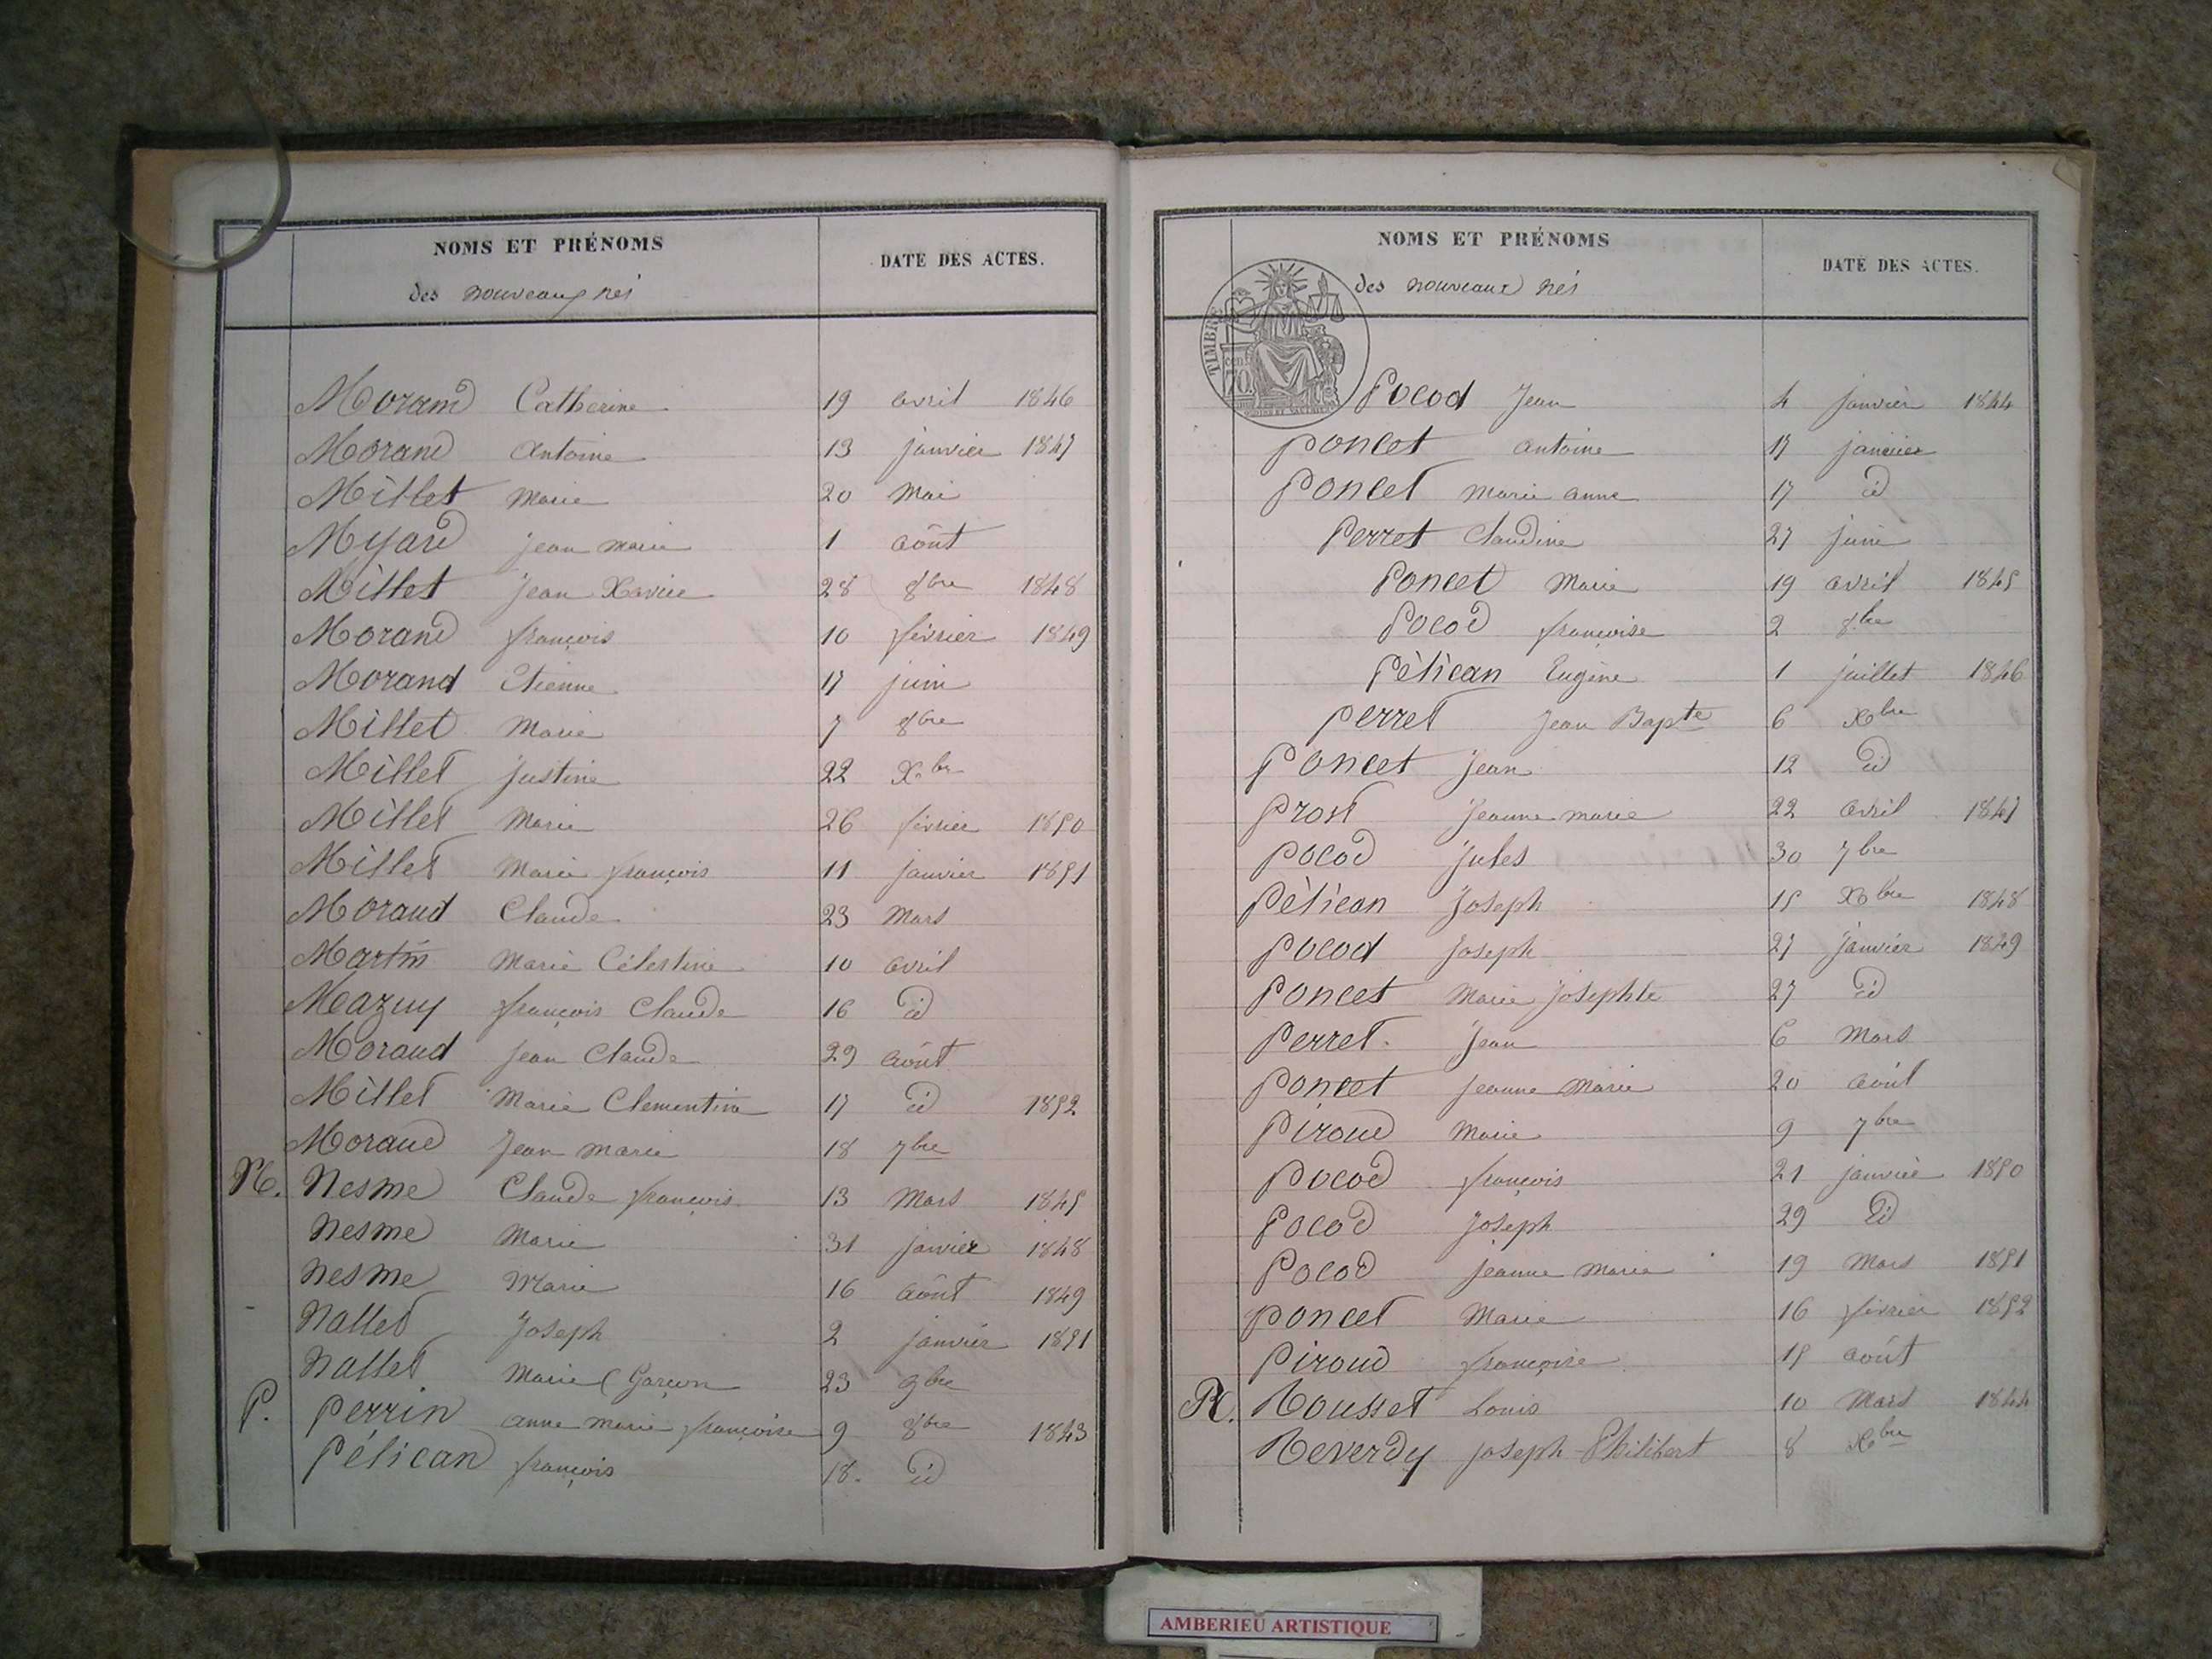 NOMS ET PRÉNOMS
des nouveaux nés
DATE DES ACTES.
Morand Catherine 19 avril 1846
Morand Antoine 13 janvier 1847
Millet Marie 20 Mai
Myard Jean marie 1 août
Millet Jean Xavier 28 8bre 1848
Morand françois 10 février 1849
Morand Etienne 17 juin
Millet Marie 7 8bre
Millet Justine 22 Xbre
Millet Marie 26 février 1850
Millet Marie françois 11 janvier 1851
Moraud Claude 23 Mars
Martin Marie Célestine 10 avril
Mazuy françois Claude 16 id
Moraud Jean Claude 29 août
Millet Marie Clementine 17 id 1852
Moraud Jean Marie 18 7bre
N. Nesme Claude françois 13 Mars 1845
Nesme Marie 31 janvier 1848
Nesme Marie 16 août 1849
Nallet Joseph 2 janvier 1851
Nallet Marie (Garçon 23 9bre
P. Perrin anne marie françoise 9 8bre 1843
Pélican françois 18. id
NOMS ET PRÉNOMS
des nouveaux nés
DATE DES ACTES.
TIMBRE
70 cent
Pocod Jean 4 janvier 1844
Poncet antoine 17 janvier
Poncet Marie anne 17 id
Perret Claudine 27 juin
Poncet Marie 19 avril 1845
Pocod françoise 2 8bre
Pélican Eugène 1 juillet 1846
Perret Jean Bapte 6 Xbre
Poncet Jean 12 id
Prost Jeanne marie 22 avril 1847
Pocod Jules 30 7bre
Pélican Joseph 15 Xbre 1848
Pocod Joseph 27 janvier 1849
Poncet Marie Josephte 27 id
Perret Jean 6 Mars
Poncet Jeanne Marie 20 août
Piroud Marie 9 7bre
Pocod françois 21 janvier 1850
Pocod Joseph 29 id
Pocod Jeanne Marie 19 Mars 1851
Poncet Marie 16 février 1852
Piroud françoise 15 août
R. Rousset Louis 10 Mars 1844
Reverdy Joseph Philibert 8 Xbre
AMBERIEU ARTISTIQUE